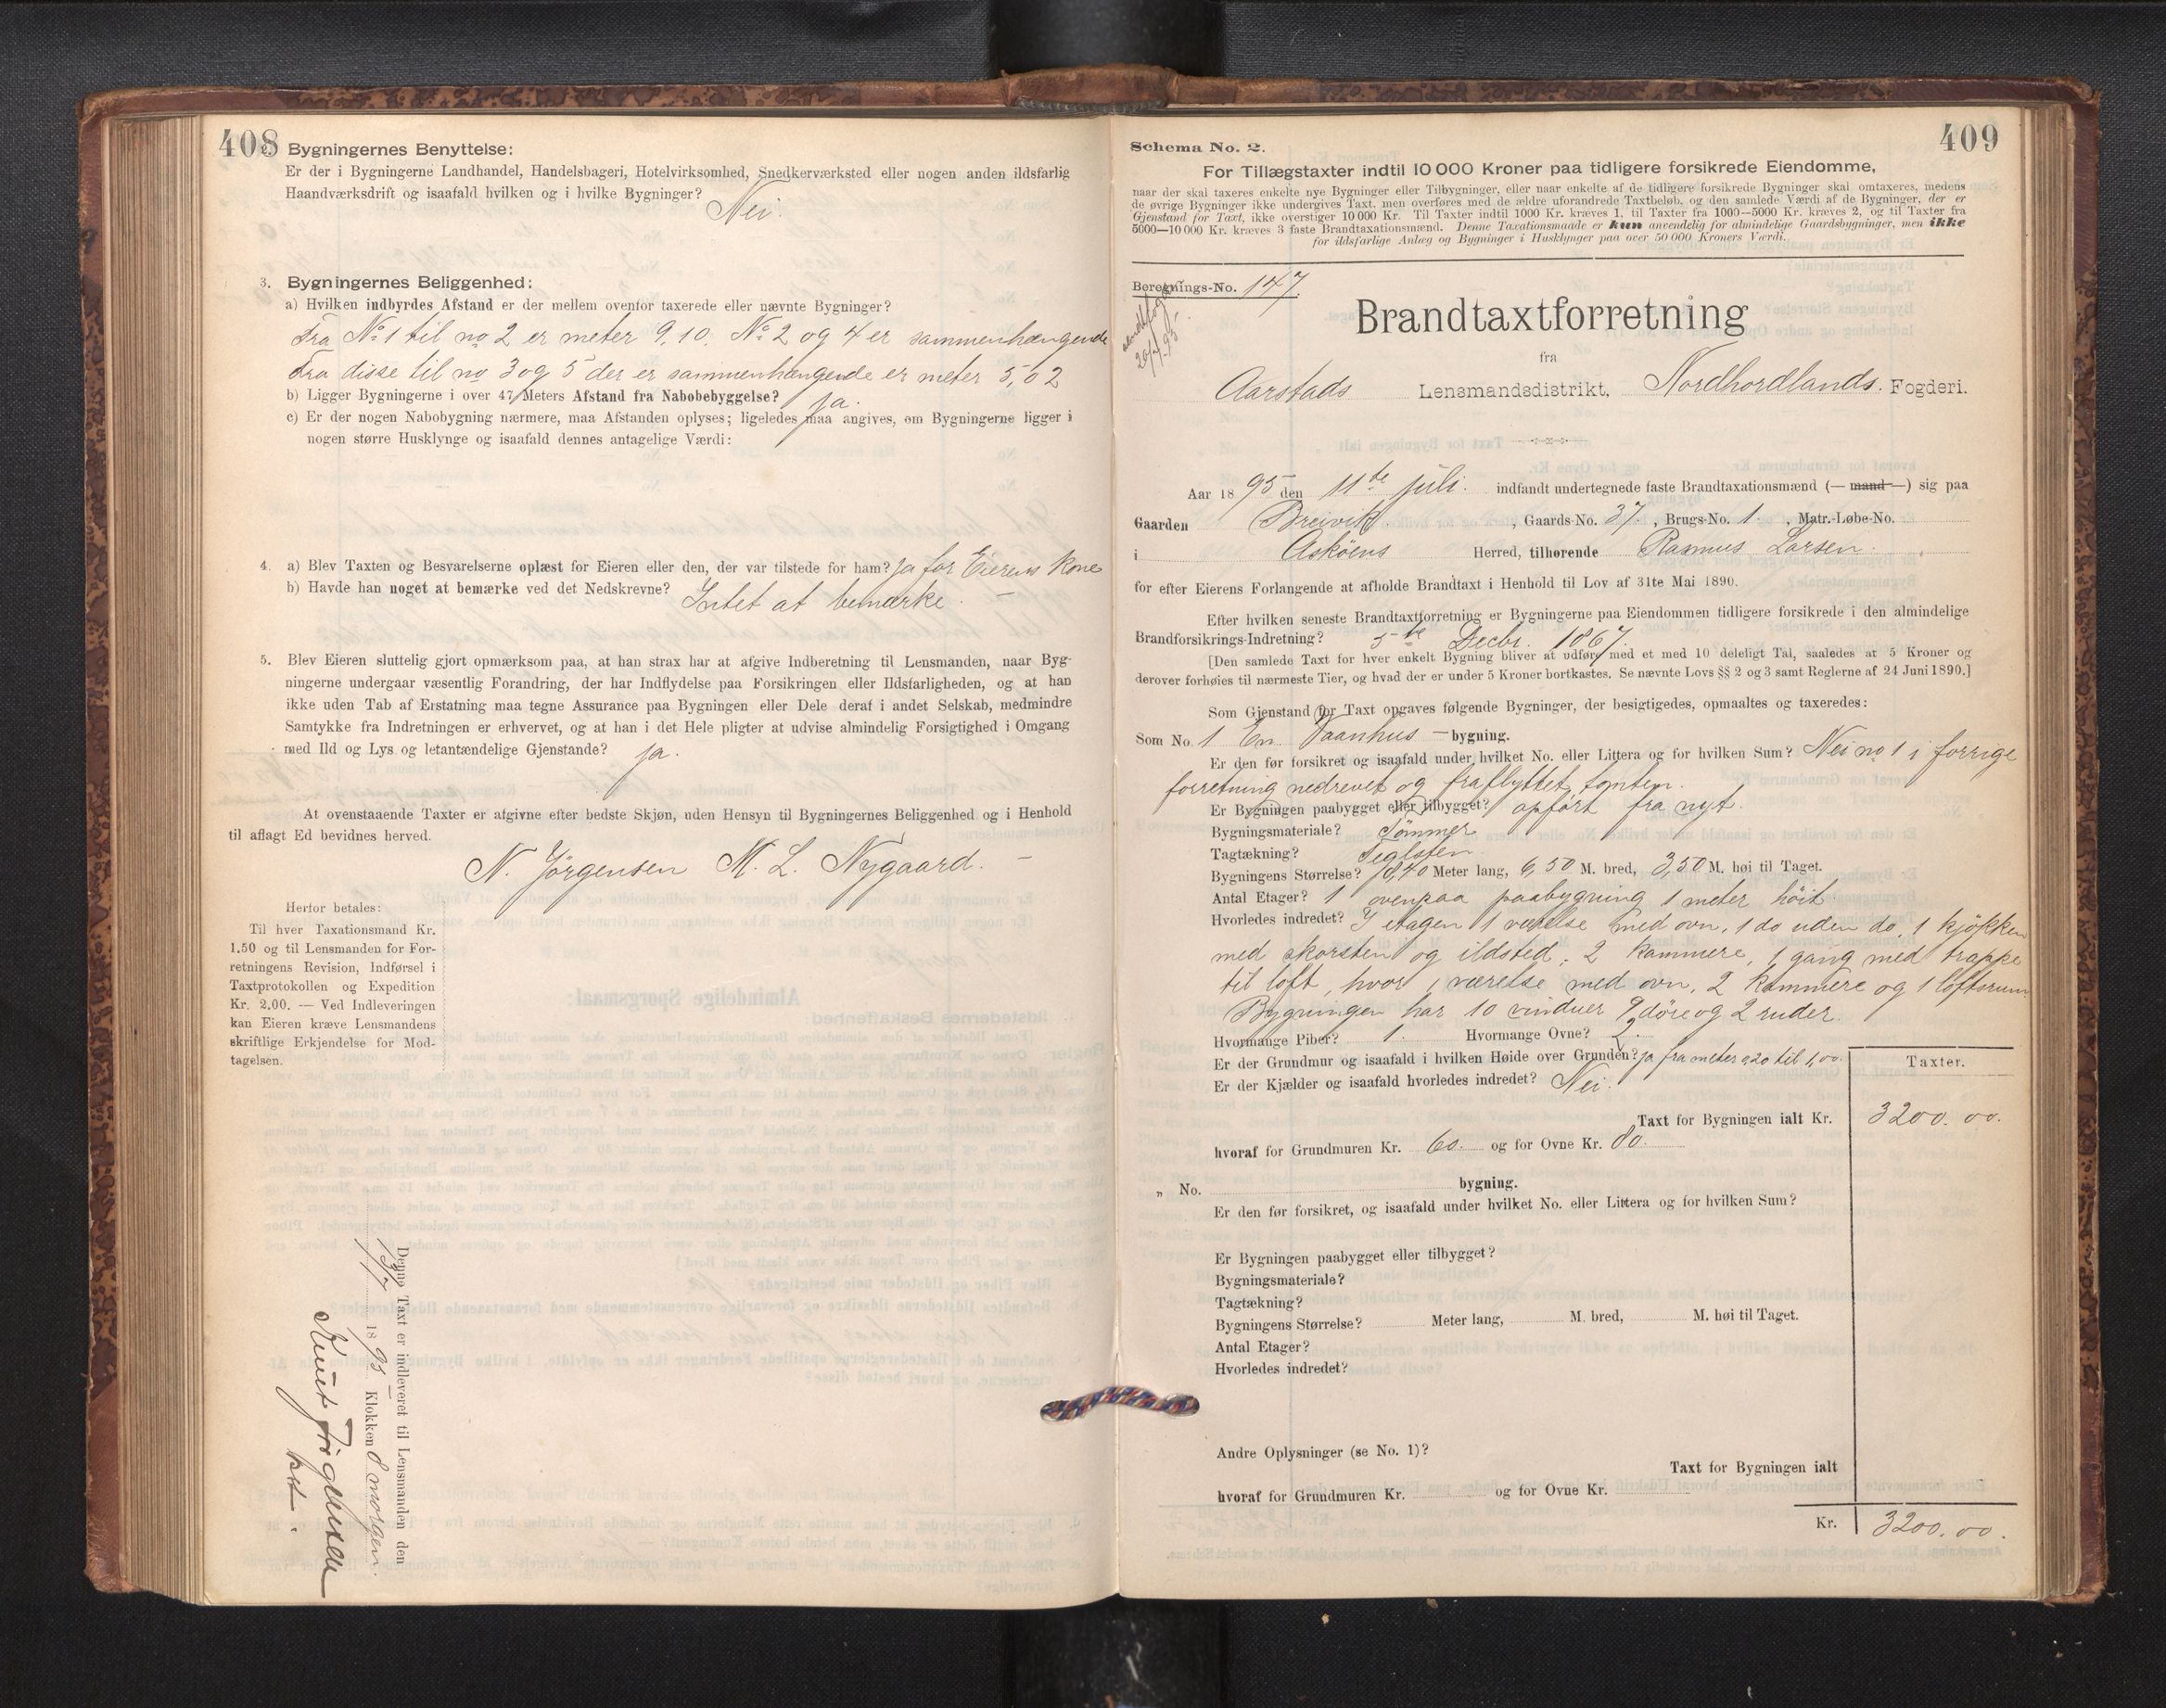 408
2. Bygningernes Benyttelse:
Er der i Bygningerne Landhandel, Handelsbageri, Hotelvirksomhed, Snedkerværksted eller nogen anden ildsfarlig
Haandværksdrift og isaafald hvilken og i hvilke Bygninger?
Nei.
3. Bygningernes Beliggenhed:
a) Hvilken indbyrdes Afstand er der mellem ovenfor taxerede eller nævnte Bygninger?
Fra No 1 til no 2 er meter 9,10. No 2 og 4 er sammenhængende
Fra disse til no 3 og 5 der er sammenhængende er meter 5,02
b) Ligger Bygningerne i over 47 Meters Afstand fra Nabobebyggelse? ja.
c) Er der nogen Nabobygning nærmere, maa Afstanden oplyses; ligeledes maa angives, om Bygningerne ligger i
nogen større Husklynge og isaafald dennes antagelige Værdi:
4. a) Blev Taxten og Besvarelserne oplæst for Eieren eller den, der var tilstede for ham? ja for Eierens Kone
b) Havde han noget at bemærke ved det Nedskrevne? Intet at bemærke. —
5. Blev Eieren sluttelig gjort opmærksom paa, at han strax har at afgive Indberetning til Lensmanden, naar Byg-
ningerne undergaar væsentlig Forandring, der har Indflydelse paa Forsikringen eller Ildsfarligheden, og at han
ikke uden Tab af Erstatning maa tegne Assurance paa Bygningen eller Dele deraf i andet Selskab, medmindre
Samtykke fra Indretningen er erhvervet, og at han i det Hele pligter at udvise almindelig Forsigtighed i Omgang
med Ild og Lys og letantændelige Gjenstande? ja.
At ovenstaaende Taxter er afgivne efter bedste Skjøn, uden Hensyn til Bygningernes Beliggenhed og i Henhold
til aflagt Ed bevidnes herved.
N. Jörgensen M. L. Nygaard. —
Herfor betales:
Til hver Taxationsmand Kr.
1.50 og til Lensmanden for For-
retningens Revision, Indførsel i
Taxtprotokollen og Expedition
Kr. 2.00. — Ved Indleveringen
kan Eieren kræve Lensmandens
skriftlige Erkjendelse for Mod-
tagelsen.
Denne Taxt er indleveret til Lensmanden den
13/7 1895 Klokken 8 morgen.
Knut
409
Schema No. 2.
For Tillægstaxter indtil 10 000 Kroner paa tidligere forsikrede Eiendomme,
naar der skal taxeres enkelte nye Bygninger eller Tilbygninger, eller naar enkelte af de tidligere forsikrede Bygninger skal omtaxeres, medens
de øvrige Bygninger ikke undergives Taxt, men overføres med de ældre uforandrede Taxtbeløb, og den samlede Værdi af de Bygninger, der er
Gjenstand for Taxt, ikke overstiger 10 000 Kr. Til Taxter indtil 1000 Kr. kræves 1, til Taxter fra 1000—5000 Kr. kræves 2, og til Taxter fra
5000—10 000 Kr. kræves 3 faste Brandtaxationsmænd. Denne Taxationsmaade er kun anvendelig for almindelige Gaardsbygninger, men ikke
for ildsfarlige Anlæg og Bygninger i Husklynger paa over 50 000 Kroners Værdi.
Beretnings-No. 147.
Brandtaxtforretning
fra
Aarstads Lensmandsdistrikt, Nordhordlands. Fogderi.
Aar 1895 den 11te juli. indfandt undertegnede faste Brandtaxationsmænd (— mand —) sig paa
Gaarden Breivik. , Gaards-No. 37. , Brugs-No. 1. , Matr.-Løbe-No.
i Asköens Herred, tilhørende Rasmus Larsen.
for efter Eierens Forlangende at afholde Brandtaxt i Henhold til Lov af 31te Mai 1890.
Efter hvilken seneste Brandtaxtforretning er Bygningerne paa Eiendommen tidligere forsikrede i den almindelige
Brandforsikrings-Indretning? 5te Decbr. 1867.
[Den samlede Taxt for hver enkelt Bygning bliver at udføre med et med 10 deleligt Tal, saaledes at 5 Kroner og
derover forhøies til nærmeste Tier, og hvad der er under 5 Kroner bortkastes. Se nævnte Lovs §§ 2 og 3 samt Reglerne af 24 Juni 1890.]
Som Gjenstand for Taxt opgaves følgende Bygninger, der besigtigedes, opmaaltes og taxeredes:
Som No. 1 En Vaanhus — bygning.
Er den før forsikret og isaafald under hvilket No. eller Littera og for hvilken Sum? Nei no 1 i forrige
forretning nedrevet og fraflyttet tomten.
Er Bygningen paabygget eller tilbygget? opfört fra nyt.
Bygningsmateriale? Tömmer
Tagtækning? Teglsten
Bygningens Størrelse? 8,40 Meter lang, 6,50 M. bred, 3,50 M. høi til Taget.
Antal Etager? 1 ovenpaa paabygning 1 meter höit
Hvorledes indredet? I etagen 1 værelse med ovn, 1 do uden do, 1 kjökken
med skorsten og ildsted, 2 kammere, 1 gang med trappe
til loft, hvor 1 værelse med ovn, 2 kammere og 1 loftsrum
Bygningen har 10 vinduer 9 döre og 2 ruder.
Hvormange Piber? 1. Hvormange Ovne? 2.
Er der Grundmur og isaafald i hvilken Høide over Grunden? ja fra meter 0,20 til 1,00.
Er der Kjælder og isaafald hvorledes indredet? Nei.
Taxter.
Taxt for Bygningen ialt Kr. 3200.00.
hvoraf for Grundmuren Kr. 60. og for Ovne Kr. 80.
„ No. bygning.
Er den før forsikret, og isaafald under hvilket No. eller Littera og for hvilken Sum?
Er Bygningen paabygget eller tilbygget?
Bygningsmateriale?
Tagtækning?
Bygningens Størrelse? Meter lang, M. bred, M. høi til Taget.
Antal Etager?
Hvorledes indredet?
Andre Oplysninger (se No. 1)?
Taxt for Bygningen ialt
hvoraf for Grundmuren Kr. og for Ovne Kr.
Kr. 3200.00.